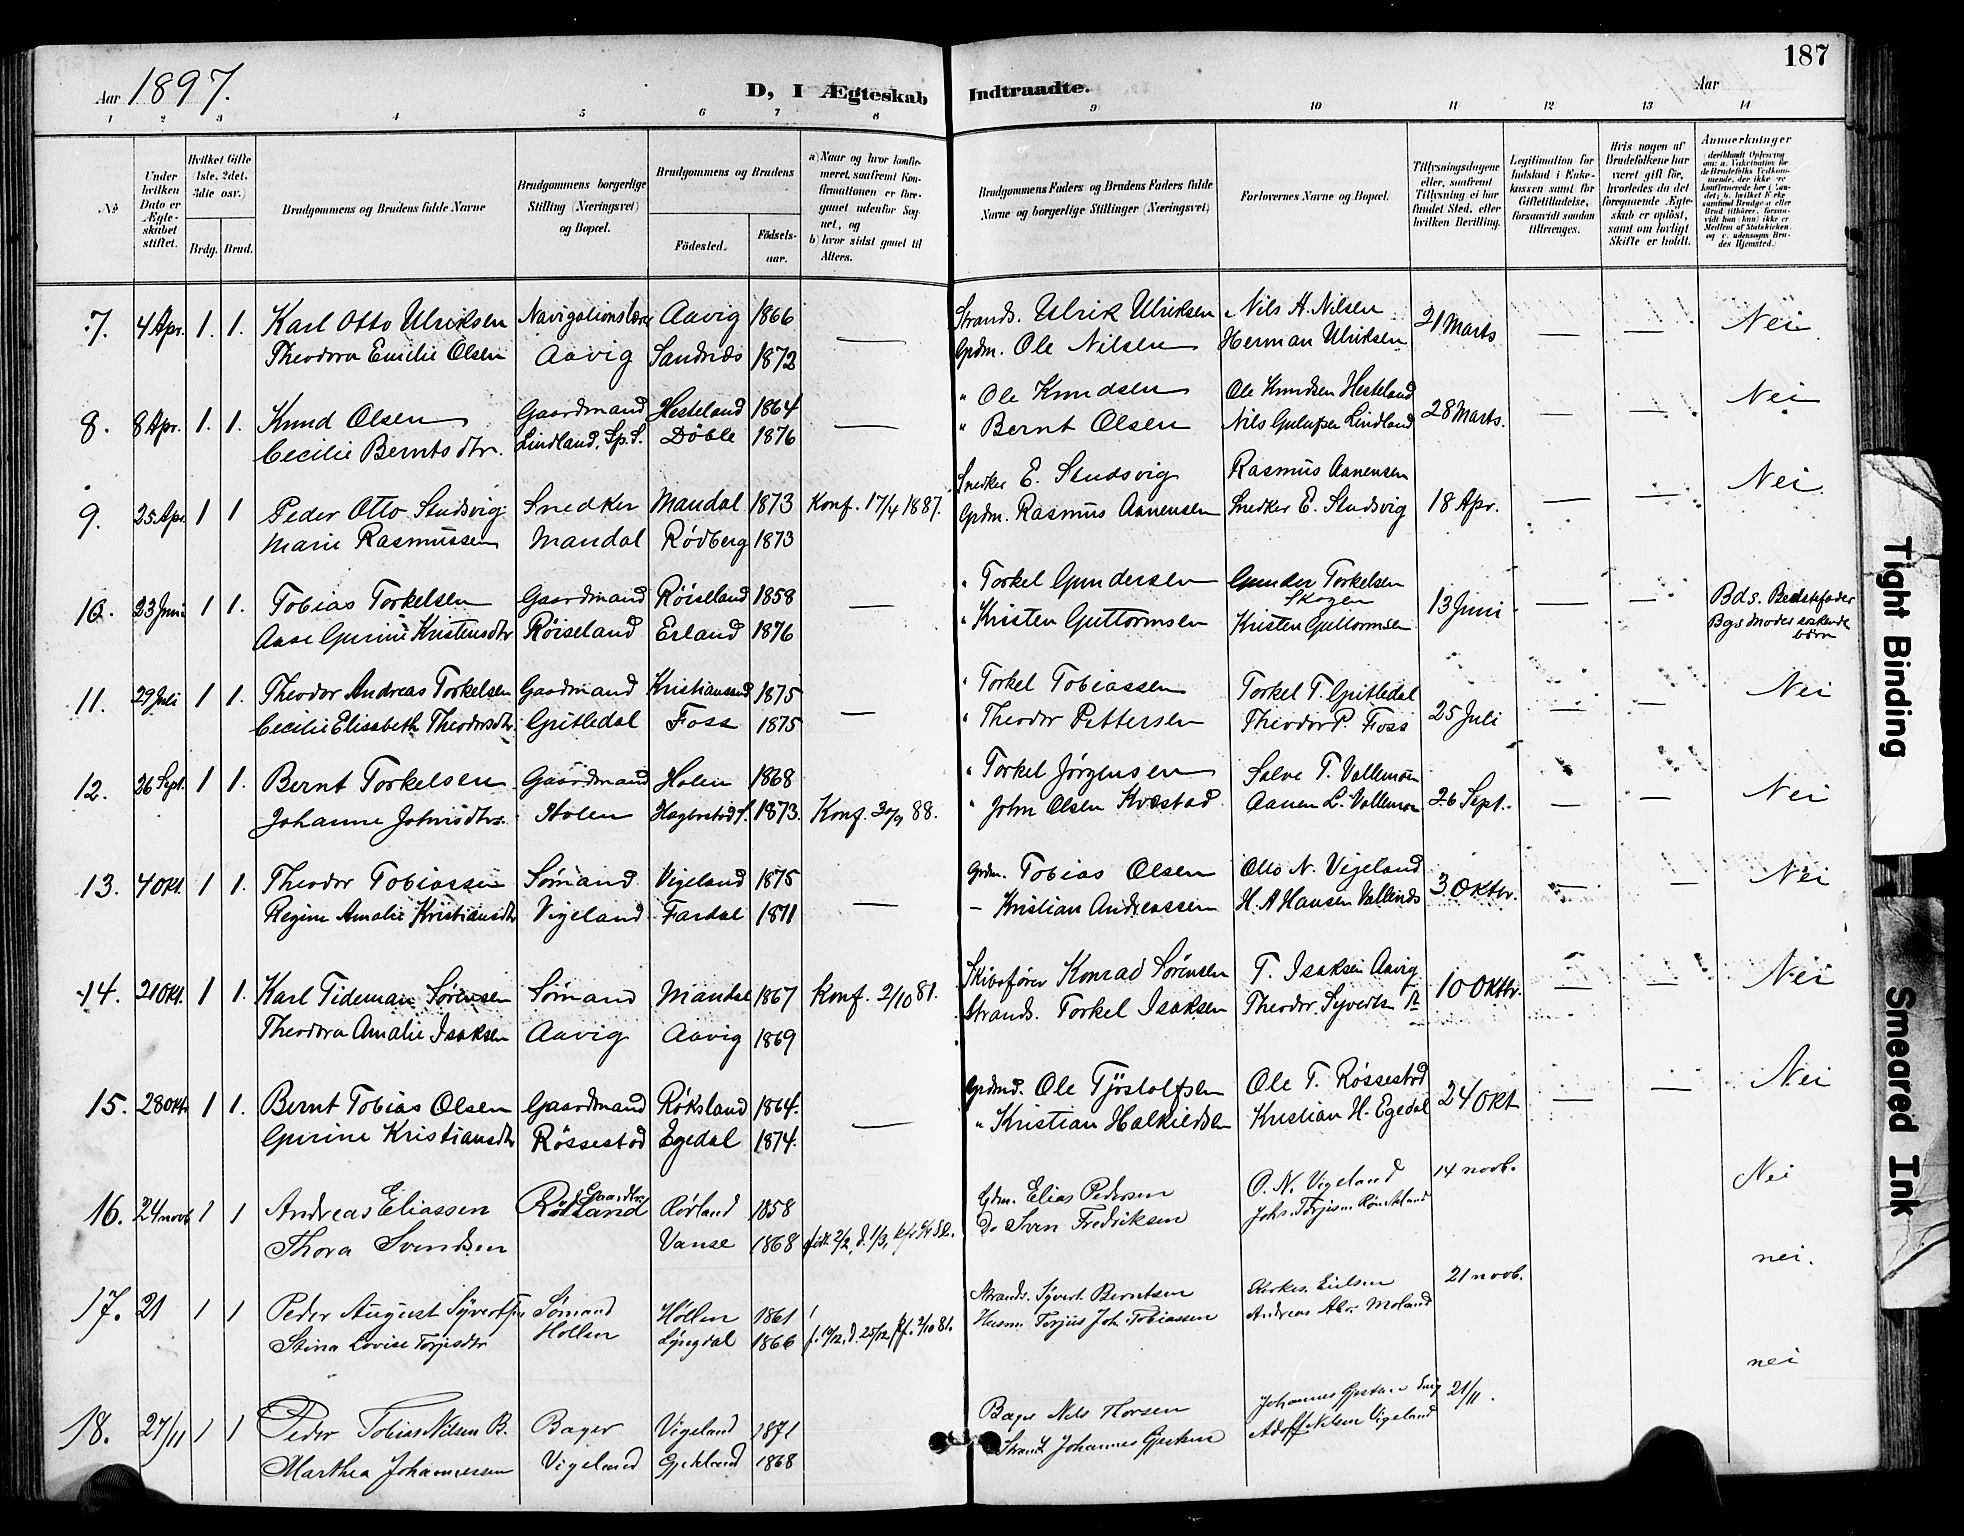 187
Aar 1897.
D, I Ægteskab Indtraadte.
Aar
1 2 3 4 5 6 7 8 9 10 11 12 13 14
No
Under hvilken Dato er Ægteskabet stiftet.
Hvilket Gifte (1ste, 2det, 3die osv.)
Brdg. Brud.
Brudgommens og Brudens fulde Navne
Brudgommens borgerlige Stilling (Næringsvei) og Bopæl.
Brudgommens og Brudens
Födested. Födselsaar.
a) Naar og hvor konfirmeret, saafremt Konfirmationen er foregaaet udenfor Sognet, og
b) hvor sidst gaaet til Alters.
Brudgommens Faders og Brudens Faders fulde Navne og borgerlige Stillinger (Næringsvei)
Forlovernes Navne og Bopæl.
Tillysningsdagene eller, saafremt Tillysning ei har fundet Sted, efter hvilken Bevilling.
Legitimation for Indskud i Enkekassen samt for Giftetilladelse, forsaavidt saadan tiltrænges.
Hvis nogen af Brudefolkene har været gift för, hvorledes da det foregaaende Ægteskab er oplöst, samt om lovligt Skifte er holdt.
Anmærkninger
7. 4 Apr. 1. 1. Karl Otto Ulriksen Navigationslærer Aavig 1866 — Strands. Ulrik Ulriksen Nils H. Nilsen 21 Marts — — Nei
Theodora Emilie Olsen Aavig Sandnæs 1872 Grdm. Ole Nilsen Herman Ulriksen
8. 8 Apr. 1. 1. Knud Olsen Gaardmand Hesteland 1864 — " Ole Knudsen Ole Knudsen Hesteland 28 Marts. — — Nei
Cecilie Berntsdtr. Lindland, Sp. S. Döble 1876 " Bernt Olsen Nils Gulufsen Lindland
9. 25 Apr. 1 1 Peder Otto Studsvig Snedker Mandal 1873 Konf. 17/4 1887. Snedker E. Studsvig Rasmus Aanensen 18 Apr. — — Nei.
Marie Rasmussen Mandal Rødberg 1873 Grdm. Rasmus Aanensen Snedker E. Studsvig
10. 23 Juni 1 1. Tobias Torkelsen Gaardmand Røiseland 1858 — " Torkel Gundersen Gunder Torkelsen Skogen 13 Juni — — Bds. Bedstefader
Aase Gurine Kristensdtr Røiseland Erland 1876 " Kristen Guttormsen Kristen Guttormsen Bgs Moder søskendebørn
11. 29 Juli 1 1. Theodor Andreas Torkelsen Gaardmand Kristianssand 1875 — " Torkel Tobiassen Torkel T. Gritledal 25 Juli — — Nei
Cecilie Elisabeth Theodorsdtr. Gritledal Foss 1875 " Theodor Pettersen Theodor P. Foss
12. 26 Sept. 1 1. Bernt Torkelsen Gaardmand Holen 1868 " Torkel Jørgensen Salve T. Vallemoen 26 Sept. — — Nei
Johanne Johnsdtr. Holen 1873. Konf. 30/9 88. " John Olsen Kvæstad Aanen L. Vallemoen
13. 4 Okt. 1 1. Theodor Tobiassen Sømand Vigeland 1875 — Grdm. Tobias Olsen Otto N. Vigeland 3 Oktbr. — — Nei
Regine Amalie Kristiansdtr Vigeland Fardal 1871 - Kristian Andreassen H. A Hansen
14. 21 Okt. 1 1. Karl Tideman Sørensen Sømand Mandal 1867 Konf. 2/10 81. Skibsfører Konrad Sørensen T. Isaksen Aavig 10 Oktbr. — — Nei
Theodora Amalie Isaksen Aavig Aavig 1869 Strands. Torkel Isaksen Theodor Syverts.
15. 28 Okt. 1 1. Bernt Tobias Olsen Gaardmand Røksland 1864. — Grdmd. Ole Tjøstolfsen Ole T. Røssestad 24 Okt — — Nei
Gurine Kristiansdtr Røssestad Egedal 1874. " Kristian Halkieldsen Kristian H. Egedal
16. 24 novb 1 1 Andreas Eliassen Rødland Rørland 1858 Gdm. Elias Pedersen O. N. Vigeland 14 novb. Nei
Thora Svendsen Vanse 1868 Do Sven Fredriksen
17. 21 1 1 Peder August Syvertsen Sømand Høllen 1861 Strands. Syvert Berntsen 21 novb. nei.
Stina Lovise Torjisdtr Høllen Lyngdal 1866 f. 19/12, d. 25/12, kf. 2/10 81. Husm Torjus Joh. Tobiassen Andreas Moland
18. 27/11 1 1 Peder Tobias Nilsen B. Bager Vigeland 1871 Bager Nils Thorsen 21/11. nei
Marthea Johannessen Vigeland 1868 Strands. Johannes Adolf Nilsen Vigeland
Tight Binding
Smeared Ink